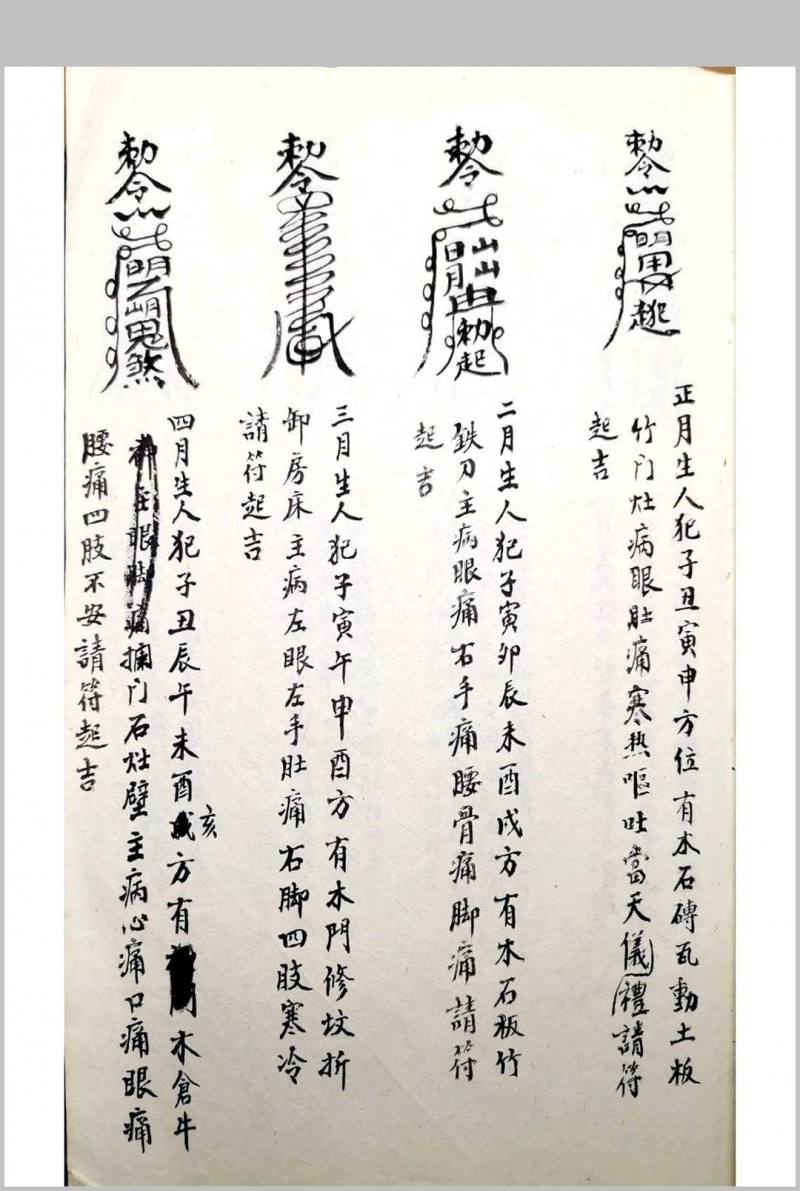 敕令
明
趒
正月生人犯子丑寅申方位有木石磚瓦動土板
竹门灶病眼肚痛寒热嘔吐當天儀禮請符
起吉
敕令
日月
山山
敕起
二月生人犯子寅卯辰未酉戌方有木石板竹
鉄刀主病眼痛右手痛腰骨痛脚痛請符
起吉
敕令
三月生人犯子寅午申酉方有木門修坟折
卸房床主病左眼左手肚痛右脚四肢寒冷
請符起吉
敕令
明
鬼
煞
四月生人犯子丑辰午未酉亥方有木倉牛
攔门石灶壁主病心痛口痛眼痛
腰痛四肢不安請符起吉